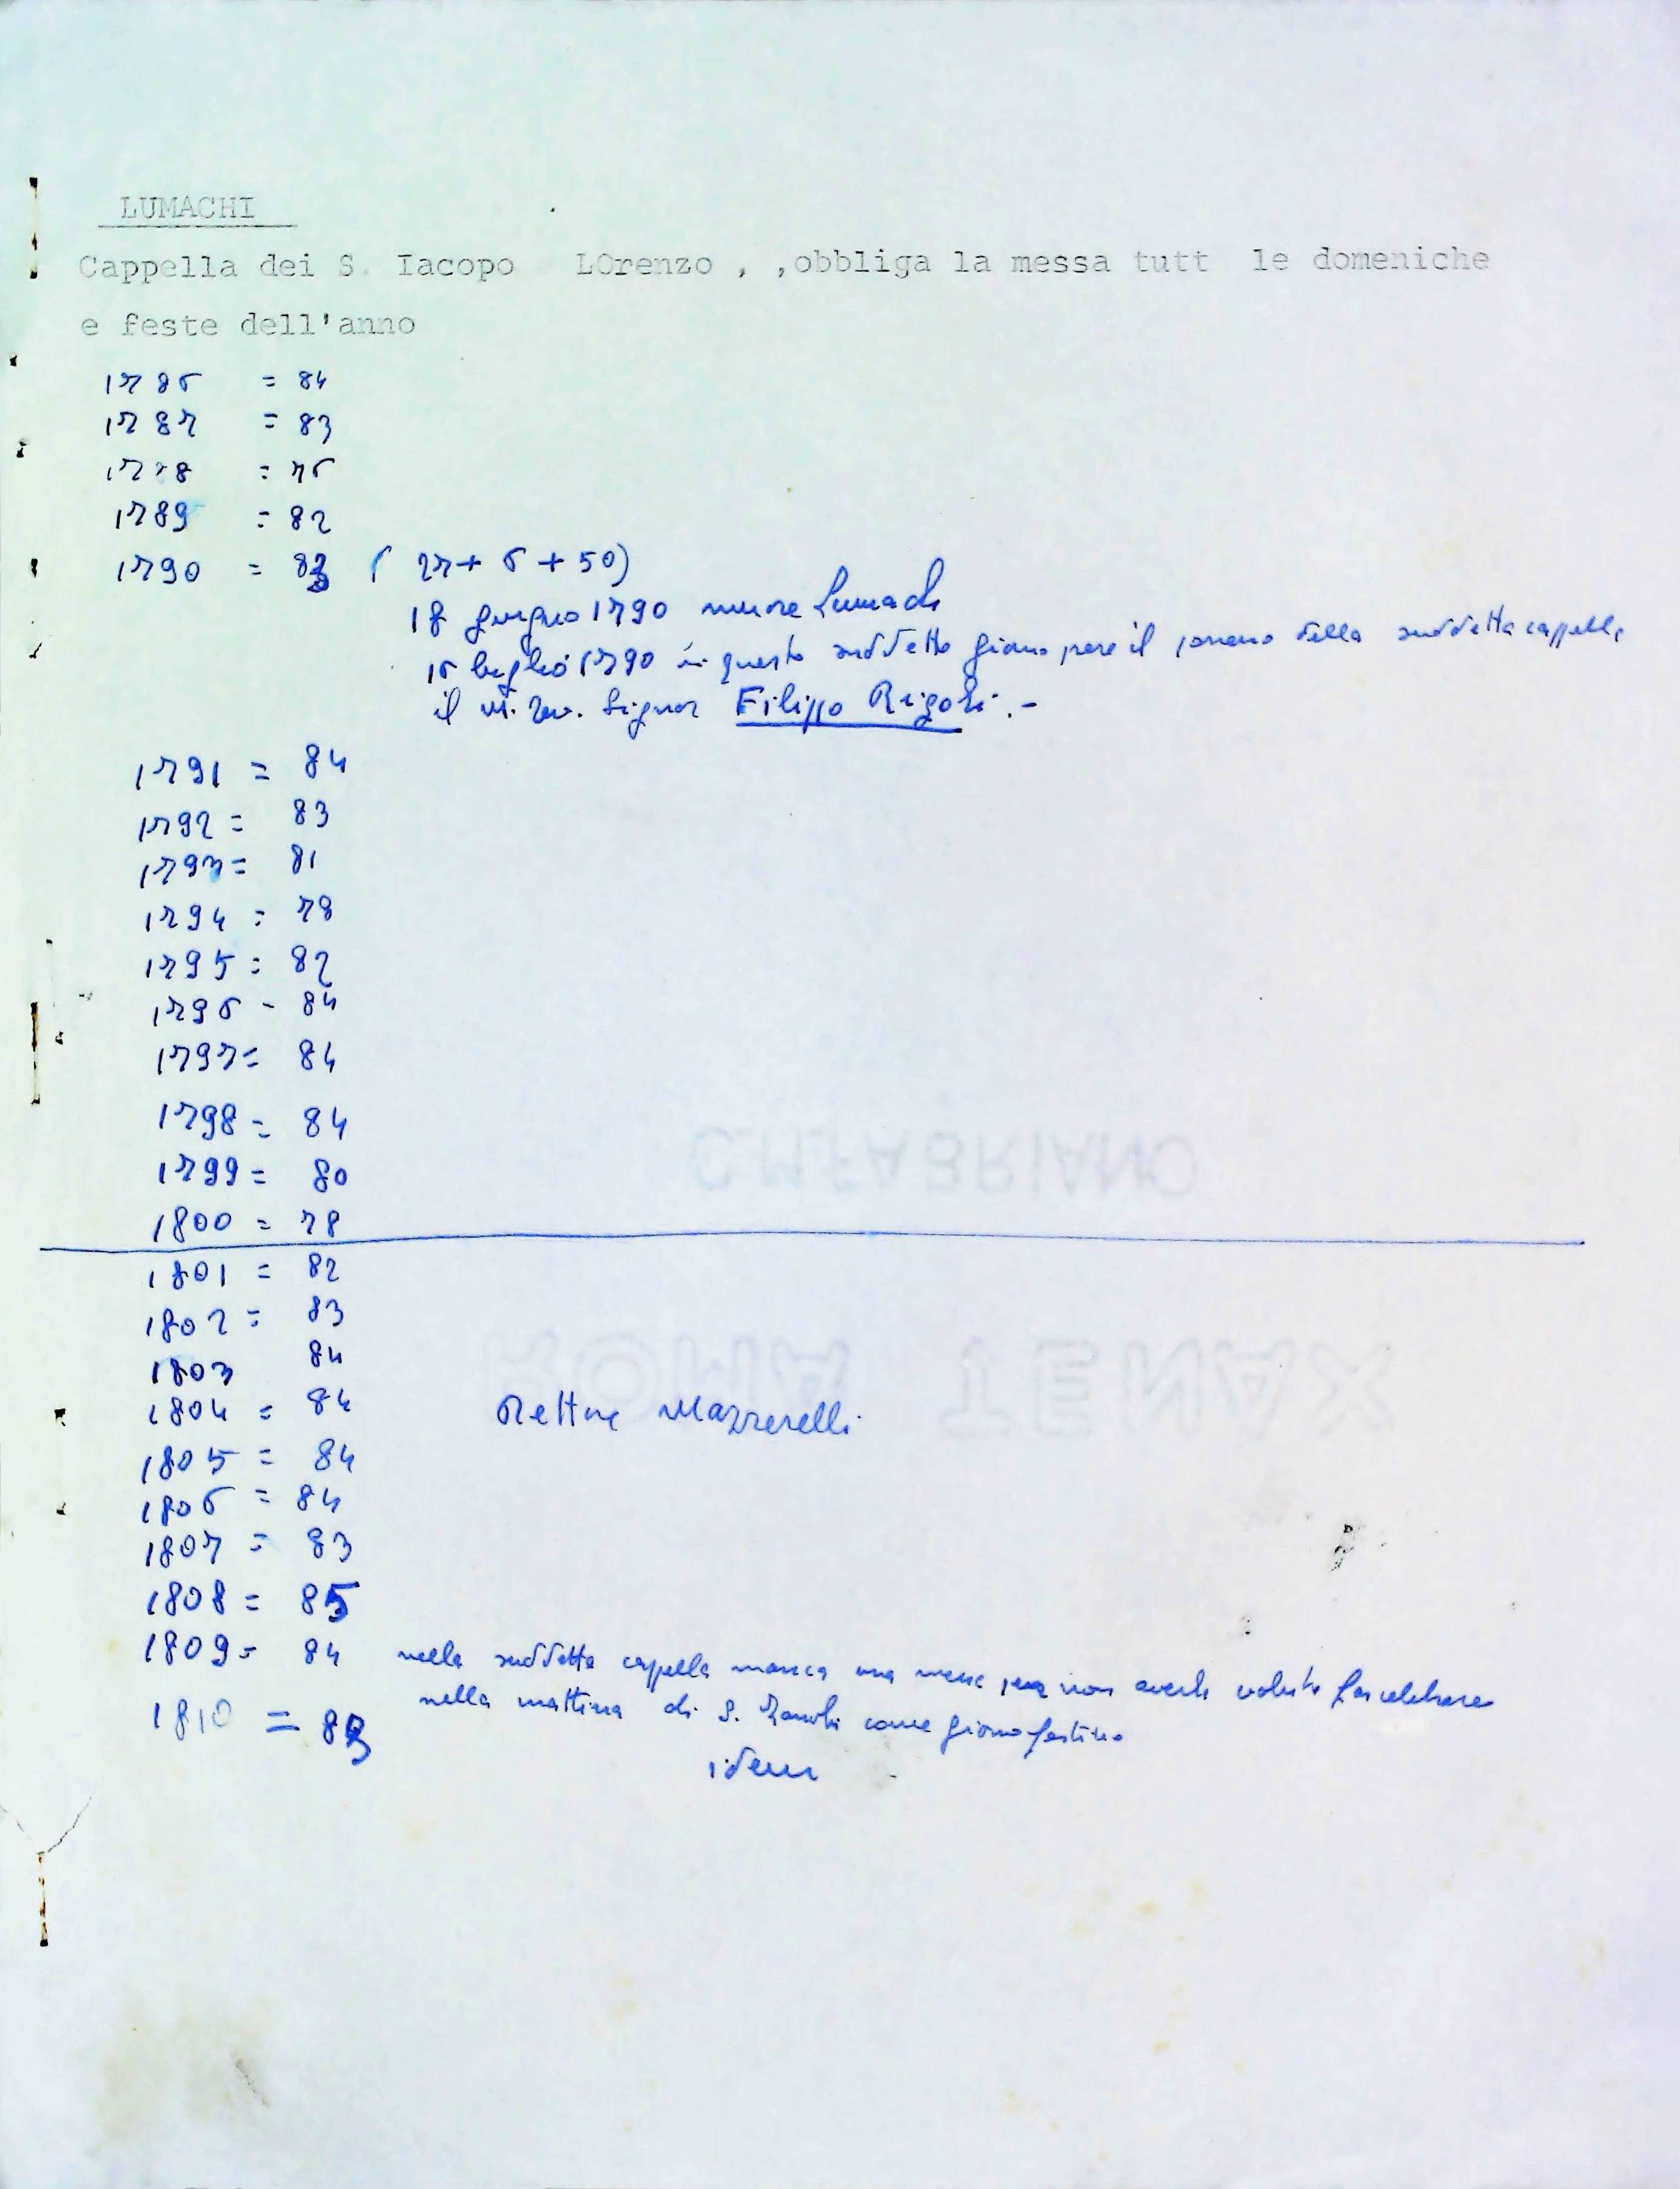 LUMACHI
Cappella dei S. Iacopo LOrenzo , ,obbliga la messa tutt le domeniche
e feste dell'anno
1786 = 84
1787 = 83
1788 = 76
1789 = 82
1790 = 83 ( 27+ 6 + 50)
18 giugno 1790 muore Lumachi
16 luglio 1790 in questo suddetto giorno prese il possesso della suddetta cappella
il M. Rev. Signor Filippo Rigoli.-
1791 = 84
1792 = 83
1793 = 81
1794 = 78
1795 = 82
1796 - 84
1797 = 84
1798 = 84
1799 = 80
1800 = 78
1801 = 82
1802 = 83
1803 84
1804 = 84 Rettore Mazzerelli
1805 = 84
1806 = 84
1807 = 83
1808 = 85
1809 = 84 nella suddetta cappella manca una messa per non averla voluta far celebrare
nella mattina di S. Zanobi come giorno festivo
1810 = 83
idem
C.M.FABRIANO
ROMA TENAX